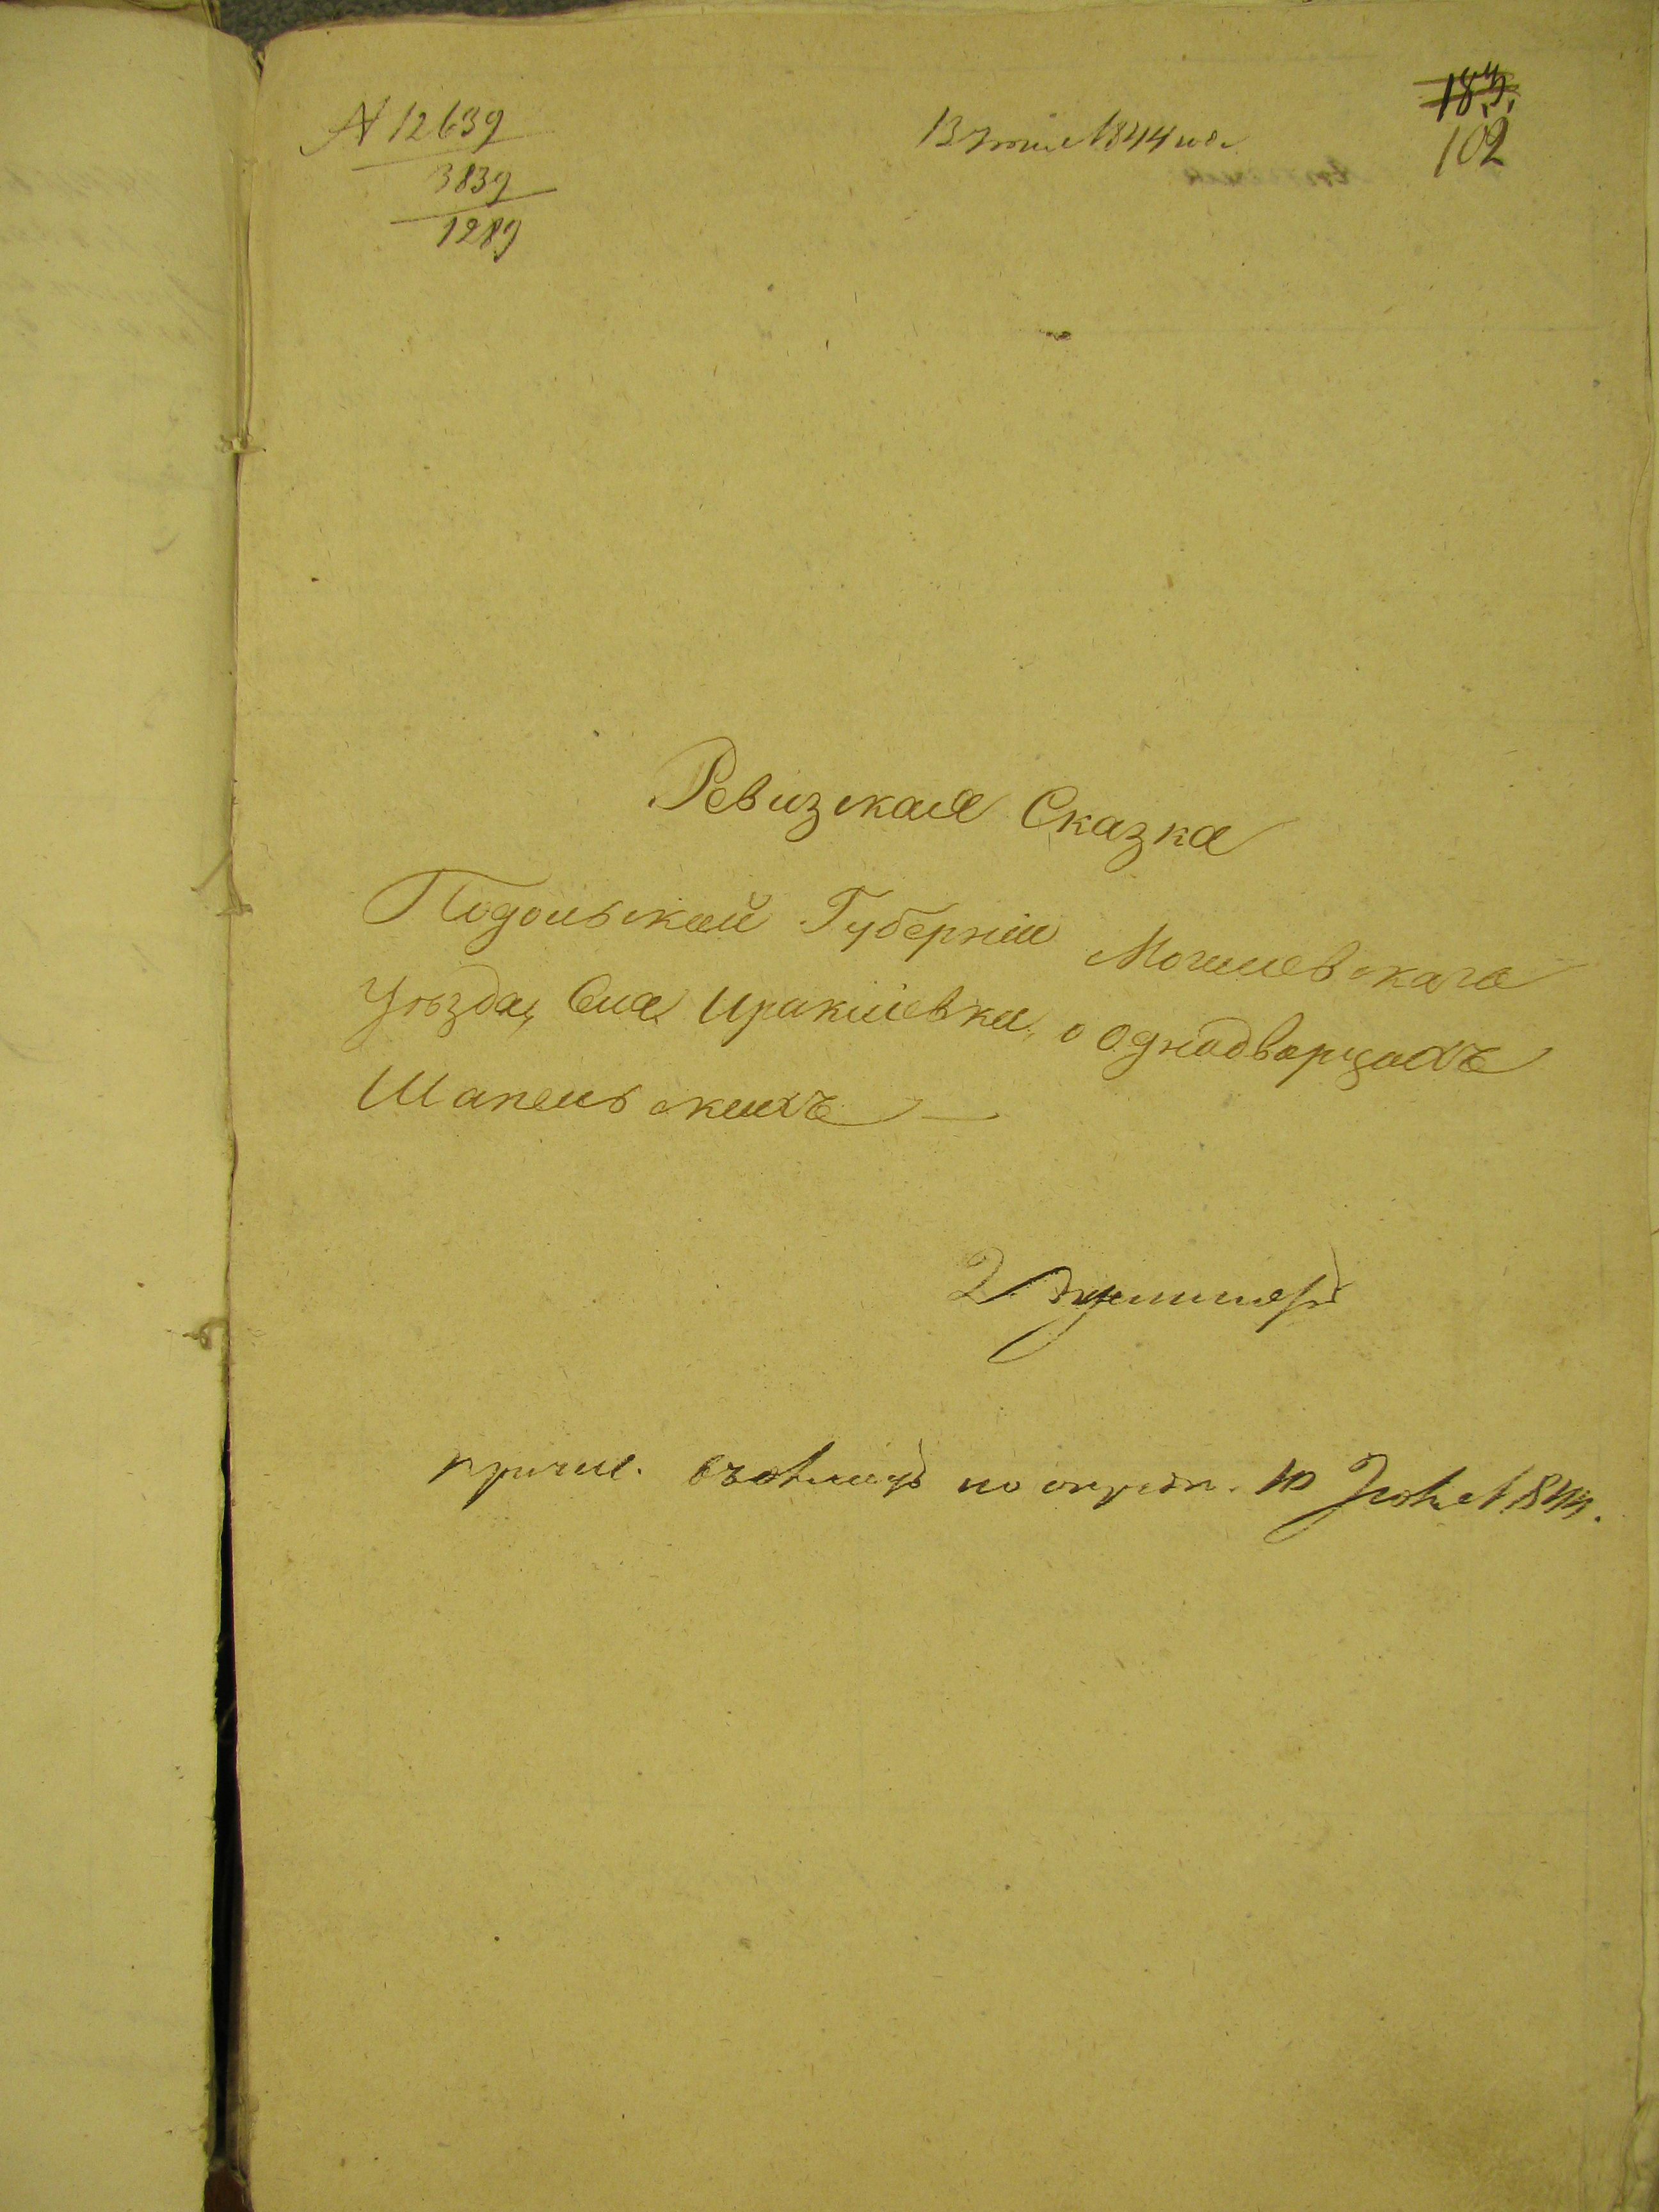 № 12639
3839
1289
13 Июня 1844 года
183.
102
Ревизская Сказка
Подольской Губерніи Могилевскаго
Уѣзда, Села Ираклиевки, о Однодворцахъ
Шапельскихъ —
2 Экземпляръ
причис. по окруж. 10 Июня 1844.